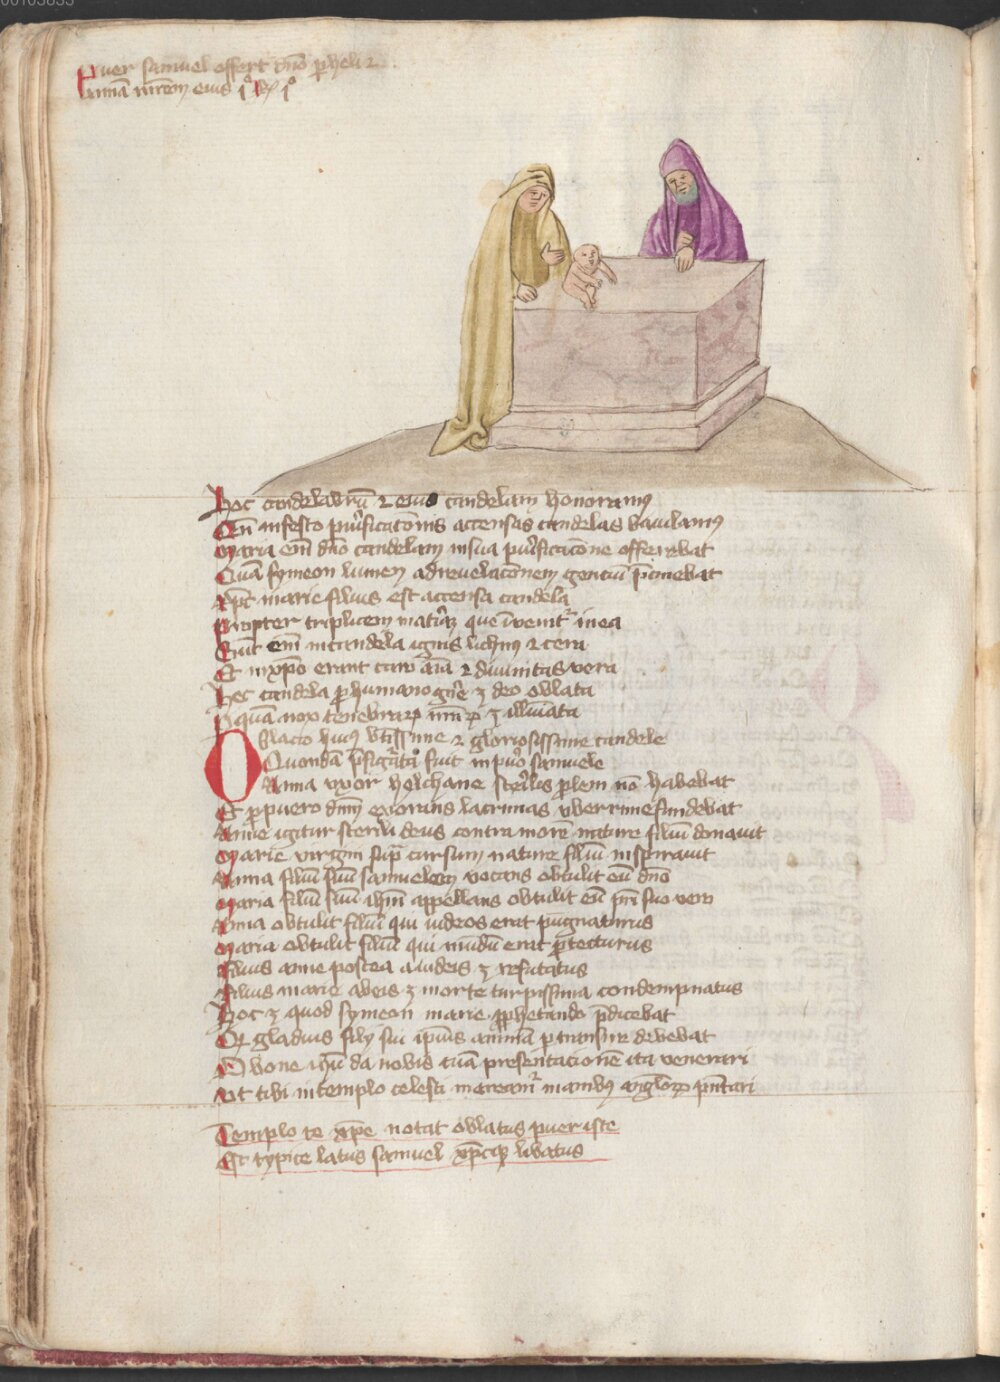 00103835
Puer samuel offert dño p heli z
Annã mr̃em eius i° R͛ i°
Hoc candelabrũ z eius candelam honoramus
Cũ in festo purificatõnis accensas candelas baiulamus
Maria em̃ dño candelam in sua purificacõne offerebat
Quã symeon lumen ad reuelacõnem gentiũ p̃cinebat
Xp̃c marie filius est accensa candela
Propter triplicem mat̃iã que ĩuenit᷑ in ea
Sũt em̃ in candela ignis lichnus z cera
Et in xp̃o erant caro aĩa z diuinitas vera
Hec candela p humano gñe ꝫ deo oblata
P quã nox tenebraꝝ nr̃aꝝ ꝫ illũiata
Oblacio huius vtissime z gloriosissime candele
Quondã p̃figurata fuit in puero samuele
Anna vxor helchane sterilis prolem nõ habebat
Et p puero dñm exorans lacrimas vberrime fundebat
Anne igitur sterili deus contra morẽ nature filiũ donauit
Marie virgini supͣ cursum nature filiũ inspirauit
Anna filiũ suũ samuelem vocans obtulit eũ dño
Maria filiũ suũ ihm̃ appellans obtulit eũ pr̃i suo vero
Anna obtulit filiũ qui iudeos erat pugnaturus
Maria obtulit filiũ qui mũdũ erat ꝓtecturus
Filius anne postea a iudeis ꝫ refutatus
Filius marie ab eis ꝫ morte turpissima condempnatus
Hoc ꝫ quod symeon marie ꝓphetando p̃dicebat
Qꝫ gladius filij sui ipius animã ptransire debebat
O bone ihũ da nobis tuã presentacionẽ ita venerari
Vt tibi in templo celesti mereamr̃ manibus angloꝝ p̃ntari
Templo te xp̃e notat oblatus puer iste
Et typice latus samuel xp̃cqꝫ libatus